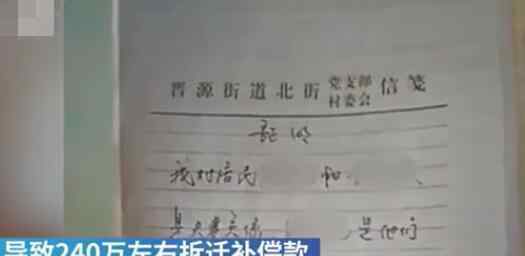 晋源街道北街党支部村委会信笺
证明
我村居民 和 、
夫妻关系 是他们
导致240万左右拆迁补偿款